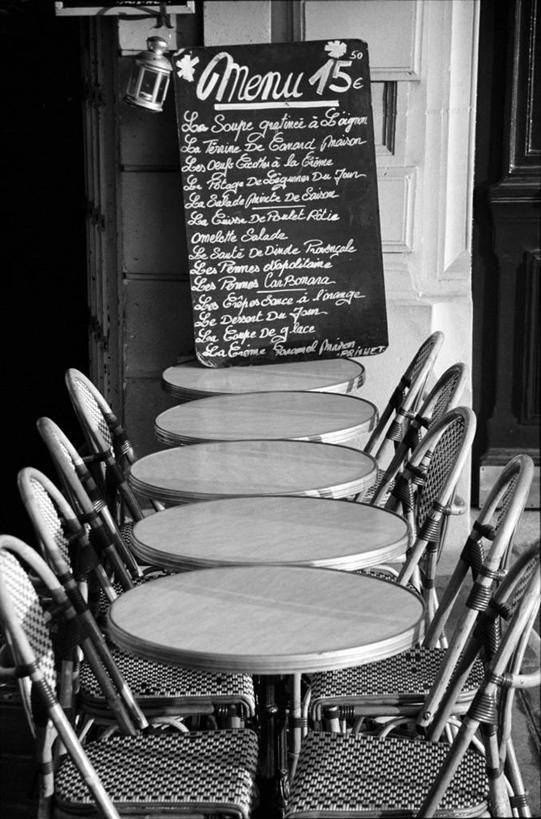 Menu 15 50 €
La Soupe gratinée à L'oignon
La Terrine De Canard Maison
Les Oeufs Cocotte à la Crème
Le Potage De Légumes Du Jour
La Salade Mixte De Saison
La Cuisse De Poulet Rôtie
Omelette Salade
Le Sauté De Dinde Provençale
Les Pennes Napolitaine
Les Pennes CarBonara
Les Crêpes Sauce à l'orange
Le Dessert Du Jour
La Coupe De glace
La Crème Caramel Maison